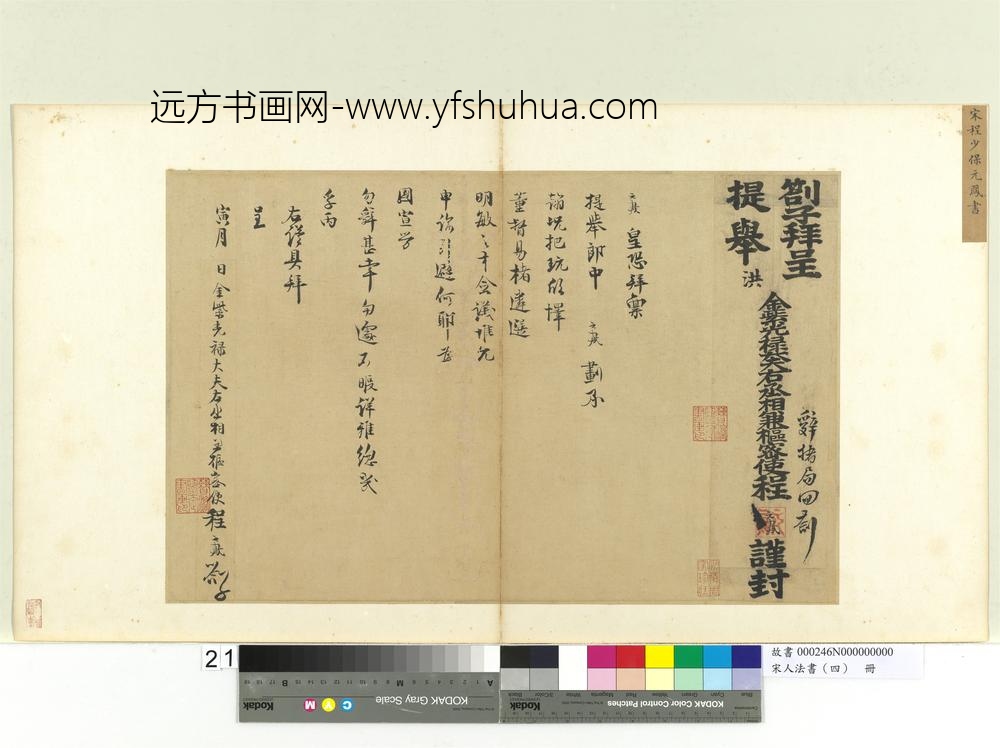 远方书画网-www.yfshuhua.com
宋程少保元鳳書
劄子拜呈
提舉 洪
金紫光祿大夫右丞相兼樞密使程 謹封
辭楮局回劄
元鳳 皇恐拜稟
提舉郎中 元鳳 劃承
翰貺把玩欣懌
董督易楮遴選
明敏之才僉議惟允
申詠引避何耶 為
國宣勞
勿辭甚幸 勿遽不暇詳惟
孚丙
右謹具拜
呈
寅月 日 金紫光祿大夫右丞相兼樞密使程元鳳劄子
21
KODAK Gray Scale
Kodak
C Y M
A 1 2 3 4 5 6 M 8 9 10 11 12 13 14 15 B 17 18 19
KODAK Color Control Patches
Blue Cyan Green Yellow Red Magenta White 3/Color Black
故書 000246N000000000
宋人法書（四） 冊